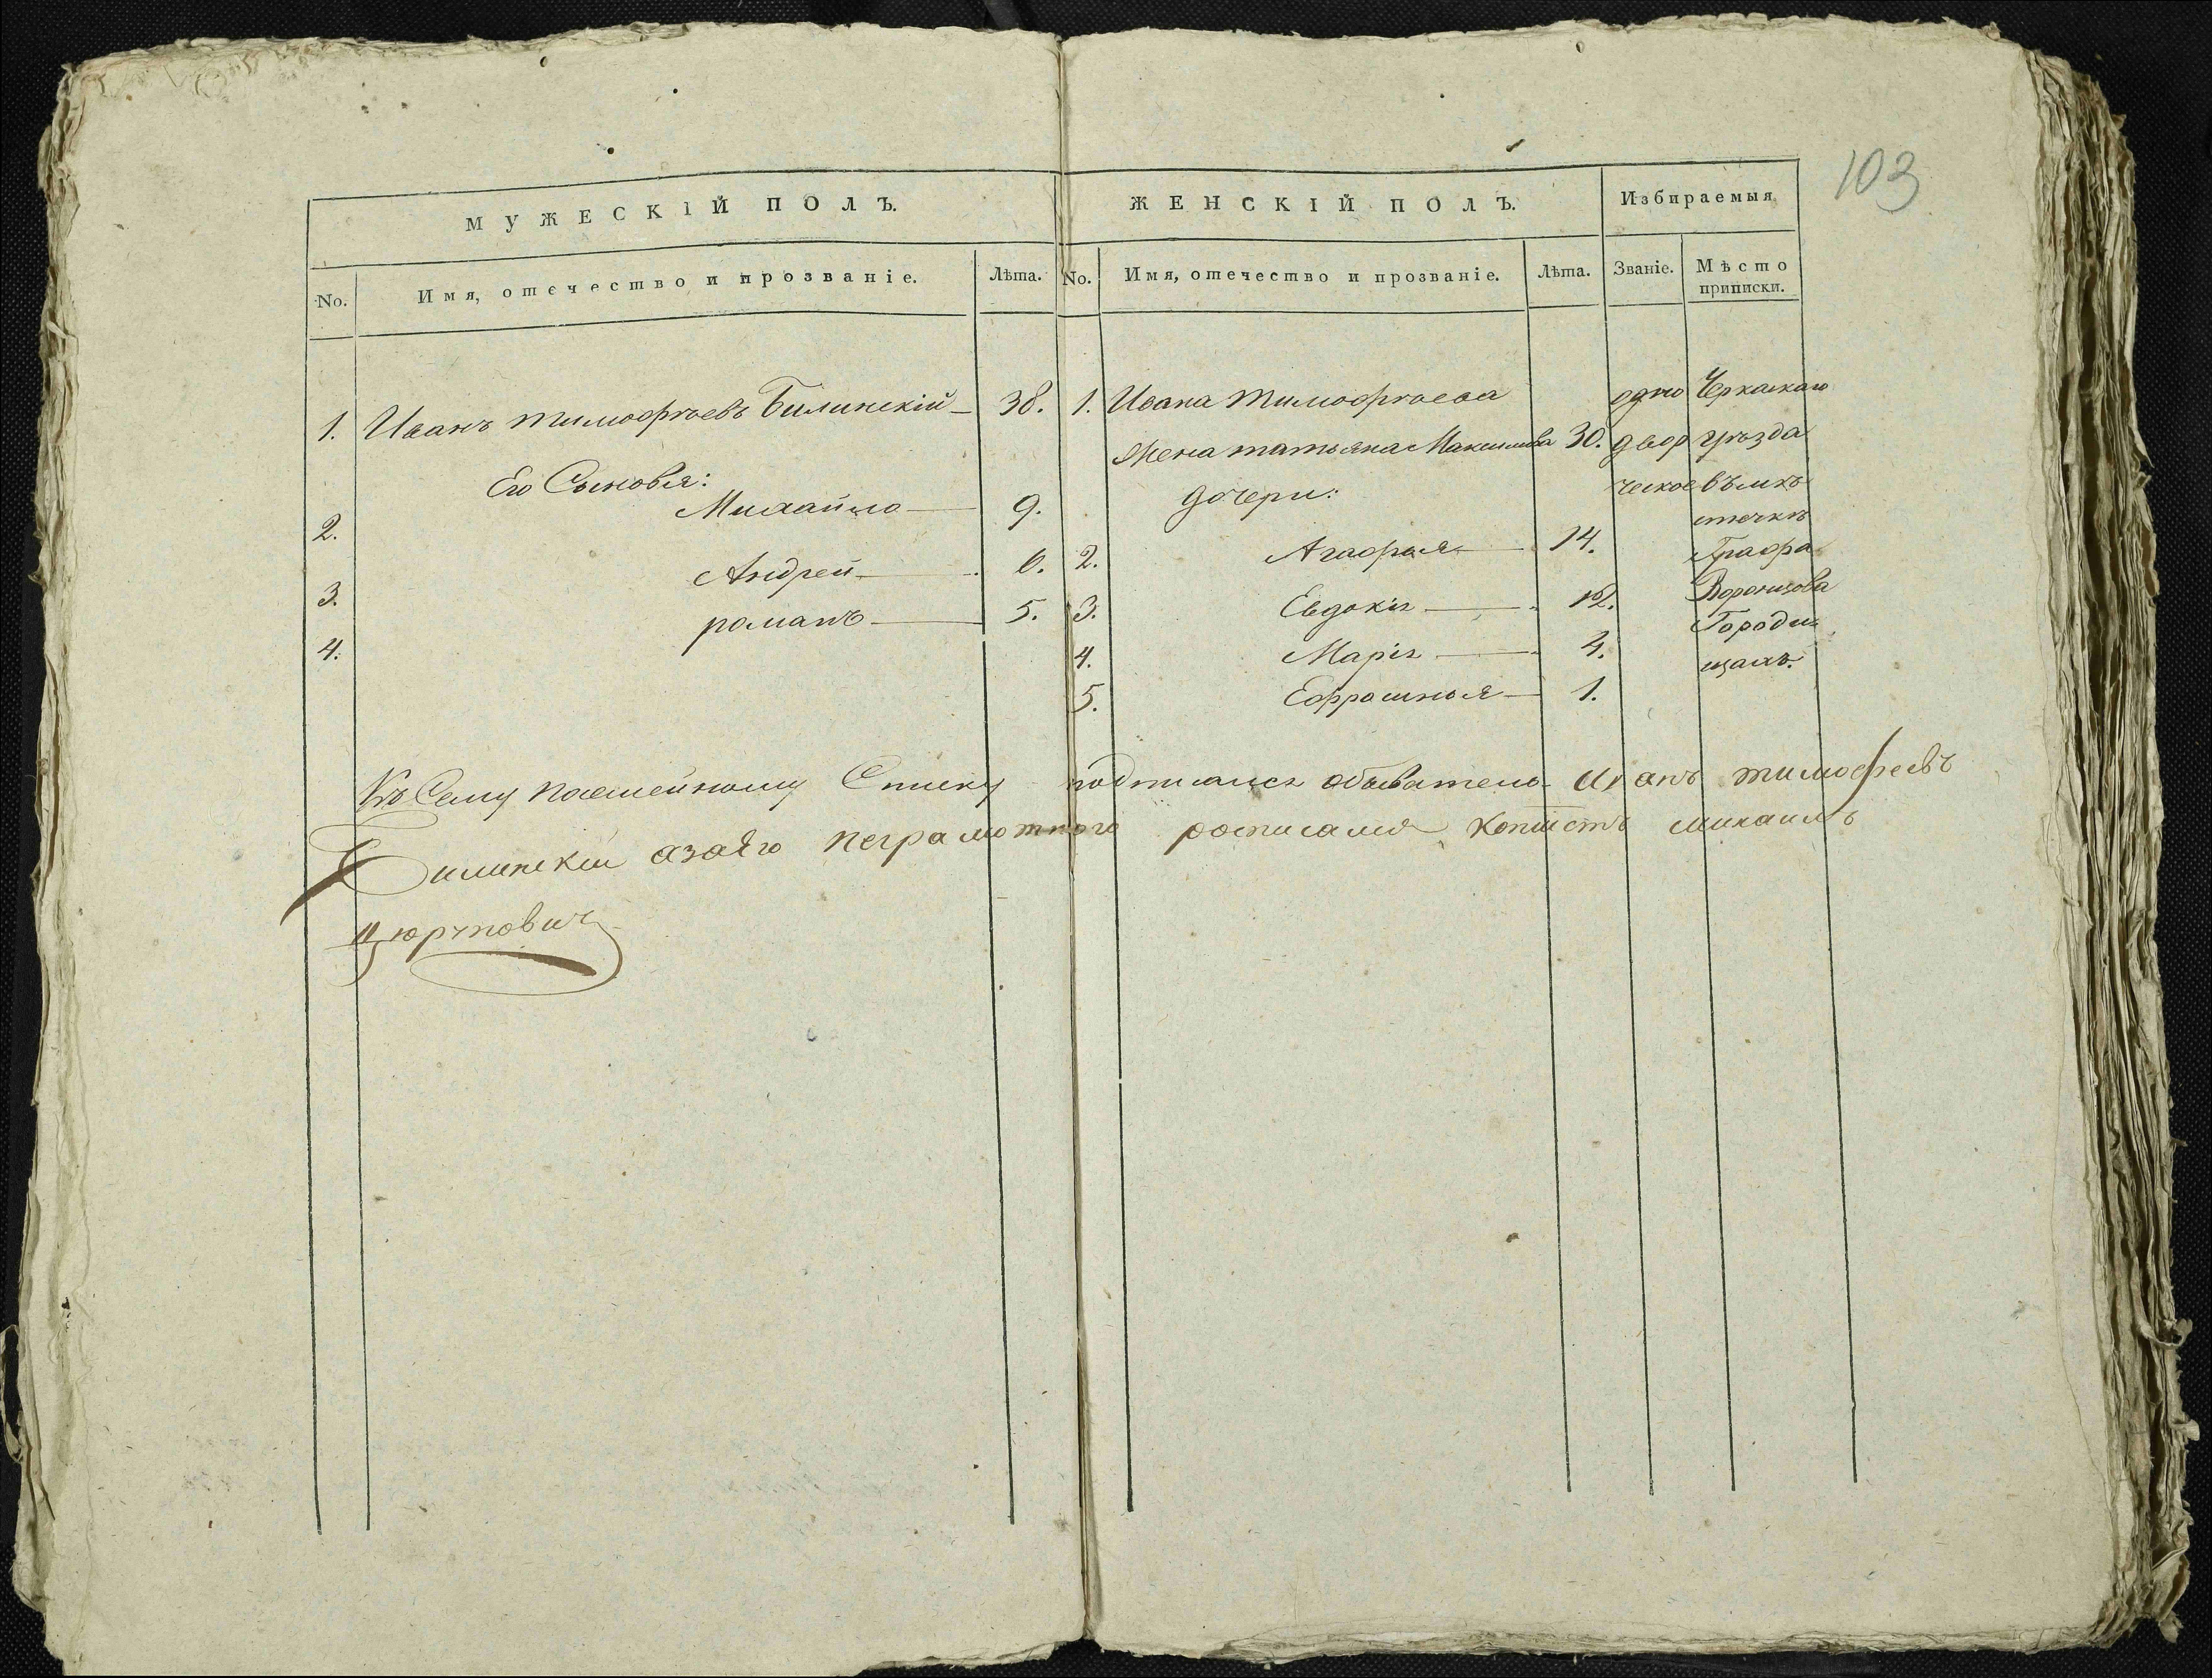 103
МУЖЕСКІЙ ПОЛЪ.
No.
Имя, отечество и прозваніе.
Лѣта.
1. Иванъ тимофѣевъ Билинскій 38.
Его Сыновья:
2. Михайло 9.
3. Андрей 6.
4. романъ 5.
ЖЕНСКІЙ ПОЛЪ.
No.
Имя, отечество и прозваніе.
Лѣта.
1. Ивана тимофѣева
жена татьяна Максимова 30.
дочери:
2. Агафья 14.
3. Евдокія 12.
4. Марія 4.
5. Ефросинья 1.
Избираемыя
Званіе.
одно
двор
ческое
Мѣсто
приписки.
Черкаскаго
уѣзда
въ мѣ
стечкѣ
Графа
Воронцова
Городи
щахъ.
Къ Сему посемейному Списку подписался обыватель Иванъ тимофеевъ
Билинскій а за его неграмотного росписался Копіистъ михаилъ